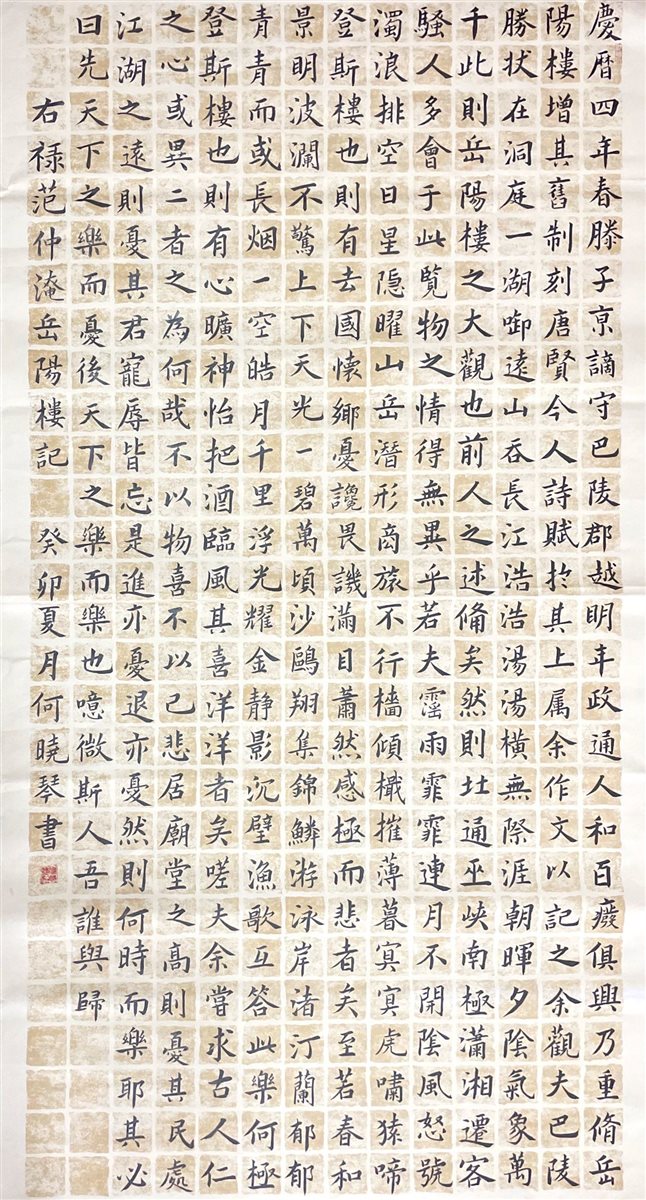 慶暦四年春滕子京謫守巴陵郡越明年政通人和百癈俱興乃重脩岳
陽樓增其舊制刻唐賢今人詩賦於其上属余作文以記之余觀夫巴陵
勝状在洞庭一湖啣遠山吞長江浩浩湯湯橫無際涯朝暉夕陰氣象萬
千此則岳陽樓之大觀也前人之述俻矣然則北通巫峽南極瀟湘遷客
騷人多會于此覽物之情得無異乎若夫霪雨霏霏連月不開陰風怒號
濁浪排空日星隱曜山岳潛形商旅不行檣傾檝摧薄暮冥冥虎嘯猿啼
登斯樓也則有去國懷鄉憂讒畏譏滿目蕭然感極而悲者矣至若春和
景明波瀾不驚上下天光一碧萬頃沙鷗翔集錦鱗游泳岸渚汀蘭郁郁
青青而或長烟一空皓月千里浮光耀金静影沉璧漁歌互答此樂何極
登斯樓也則有心曠神怡把酒臨風其喜洋洋者矣嗟夫余嘗求古人仁
之心或異二者之為何哉不以物喜不以己悲居廟堂之高則憂其民處
江湖之遠則憂其君寵辱皆忘是進亦憂退亦憂然則何時而樂耶其必
曰先天下之樂而憂後天下之樂而樂也噫微斯人吾誰與歸
右禄范仲淹岳陽樓記 癸卯夏月何曉琴書